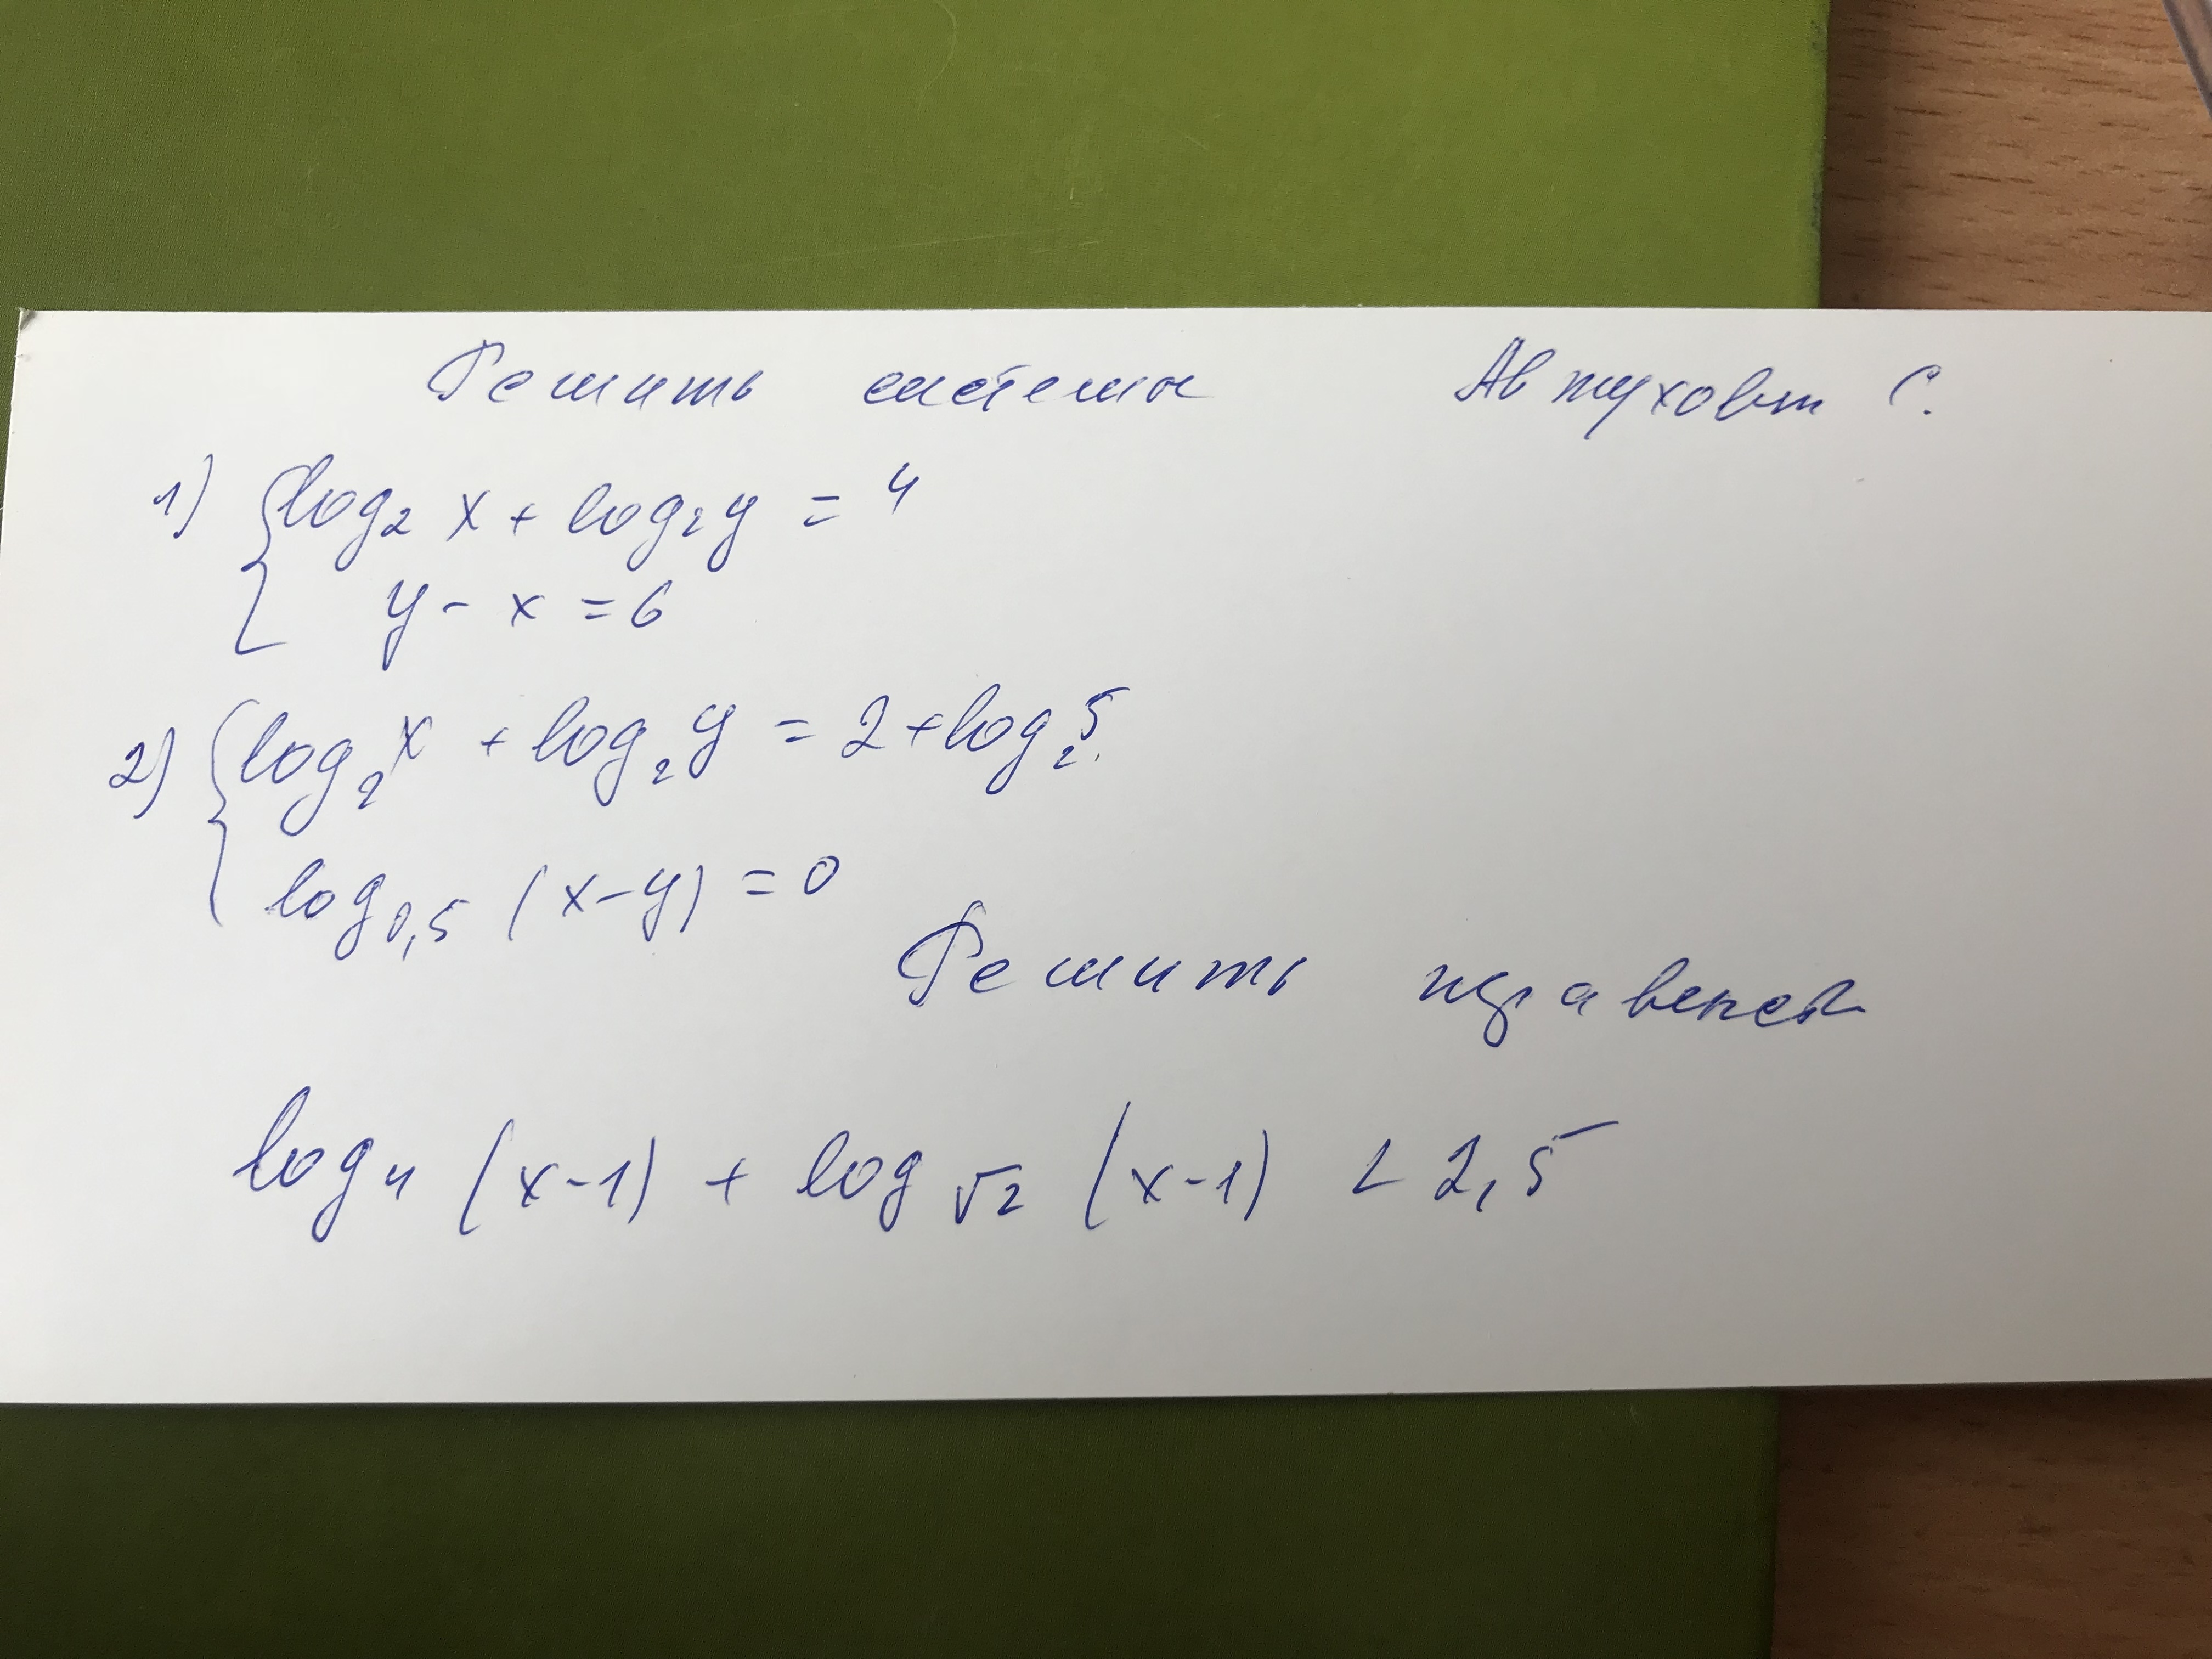 Решить системы Автухович С.
1) { log₂ x + log₂ y = 4
y - x = 6
2) { log₂ x + log₂ y = 2 + log₂ 5.
log₀,₅ (x-y) = 0
Решить
log₄ (x-1) + log √2 (x-1) < 2,5